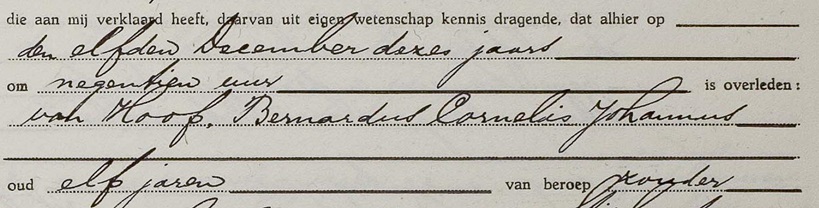 die aan mij verklaard heeft, daarvan uit eigen wetenschap kennis dragende, dat alhier op
den elfden December dezes jaars
om negentien uur is overleden:
van Hoof, Bernardus Cornelis Johannus
oud elf jaren van beroep zonder